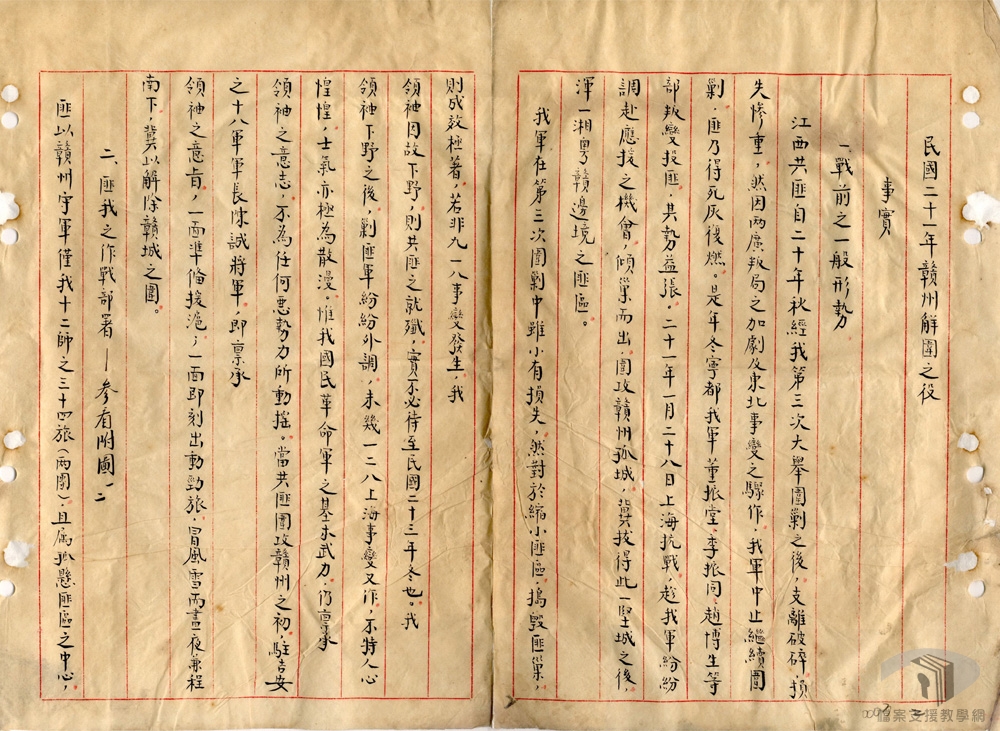 民國二十一年贛州解圍之役
事實
一、戰前之一般形勢
江西共匪自二十年秋經我第三次大舉圍剿之後，支離破碎，損
失慘重，然因兩廣叛局之加劇及東北事變之驟作，我軍中止繼續圍
剿，匪乃得死灰復燃。是年冬寧都我軍董振堂、李振同、趙博生等
部叛變投匪，其勢益張，二十一年一月二十八日上海抗戰，趁我軍紛紛
調赴應援之機會，傾巢而出，圍攻贛州孤城，冀拔得此一堅城之後，
渾一湘粵贛邊境之匪區。
我軍在第三次圍剿中雖小有損失，然對於縮小匪區，搗毀匪巢，
則成效極著，若非九一八事變發生，我
領袖因故下野，則共匪之就殲，實不必待至民國二十三年冬也。我
領袖下野之後，剿匪軍紛紛外調，未幾一二八上海事變又作，不特人心
惶惶，士氣亦極為散漫。惟我國民革命軍之基本武力，仍稟承
領袖之意志，不為任何惡勢力所動搖。當共匪圍攻贛州之初，駐吉安
之十八軍軍長陳誠將軍，即稟承
領袖之意旨，一面準備援滬，一面即刻出動勁旅，冒風雪而晝夜兼程
南下，冀以解除贛城之圍。
二、匪我之作戰部署——參看附圖一、二
匪以贛州守軍僅我十二師之三十四旅（兩團），且屬孤懸匪區之中心，
檔案支援教學網